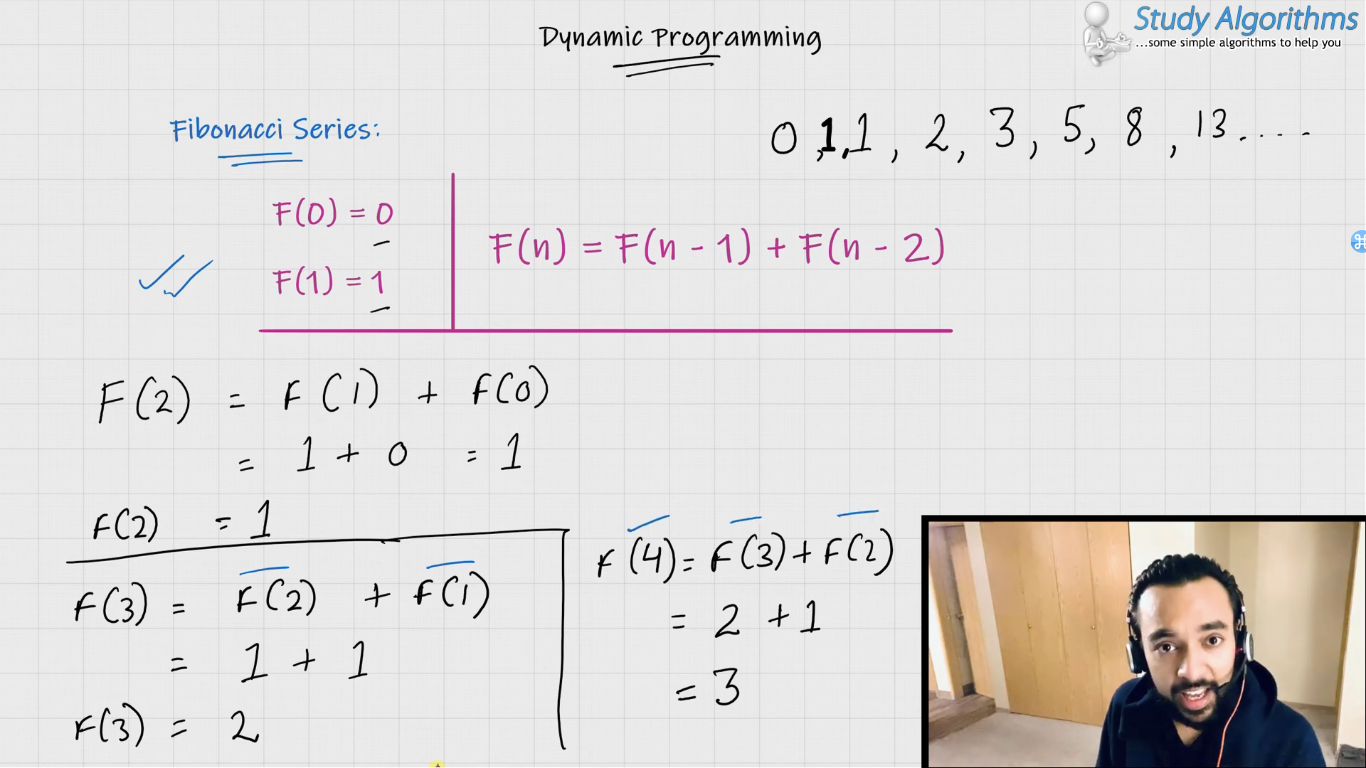 Dynamic Programming
Study Algorithms
...some simple algorithms to help you
Fibonacci Series:
0,1,1, 2, 3, 5, 8, 13....
F(0) = 0
F(1) = 1
F(n) = F(n - 1) + F(n - 2)
F(2) = F(1) + F(0)
= 1 + 0 = 1
F(2) = 1
F(3) = F(2) + F(1)
= 1 + 1
F(3) = 2
F(4) = F(3) + F(2)
= 2 + 1
= 3